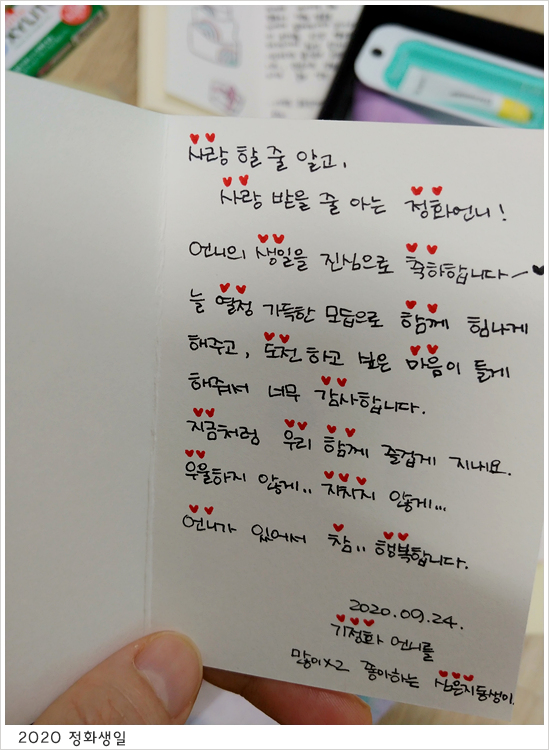 XYLIT
사랑 할 줄 알고,
사랑 받을 줄 아는 정화언니!
언니의 생일을 진심으로 축하합니다~♥
늘 열정 가득한 모습으로 함께 힘나게
해주고, 도전하고 싶은 마음이 들게
해줘서 너무 감사합니다.
지금처럼 우리 함께 즐겁게 지내요.
우울하지 않게.. 지치지 않게...
언니가 있어서 참.. 행복합니다.
2020.09.24.
기정화 언니를
많이x2 좋아하는 심은지동생이.
2020 정화생일